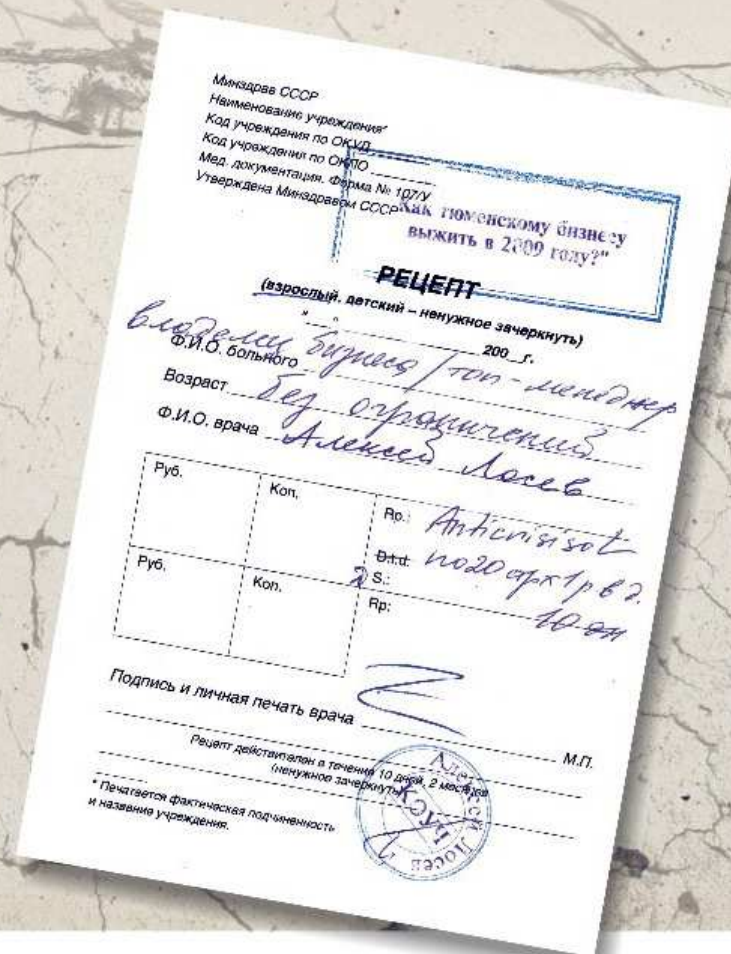 Минздрав СССР
Наименование учреждения*
Код учреждения по ОКУД
Код учреждения по ОКПО
Мед. документация. Форма № 107/У
Утверждена Минздравом СССР
Как тюменскому бизнесу
выжить в 2009 году?"
РЕЦЕПТ
(взрослый, детский – ненужное зачеркнуть)
" " 200 г.
Ф.И.О. больного владелец бизнеса/топ-менеджер
Возраст без ограничений
Ф.И.О. врача Алексей Лосев
Руб. Коп. Rp.: Anticrisisot
D.t.d. по 20 1р в д.
S.: 10 дн
Руб. Коп. Rp:
Подпись и личная печать врача
М.П.
Рецепт действителен в течение 10 дней, 2 месяцев
(ненужное зачеркнуть)
* Печатается фактическая подчиненность
и название учреждения.
Алексей Лосев
КОУЧ